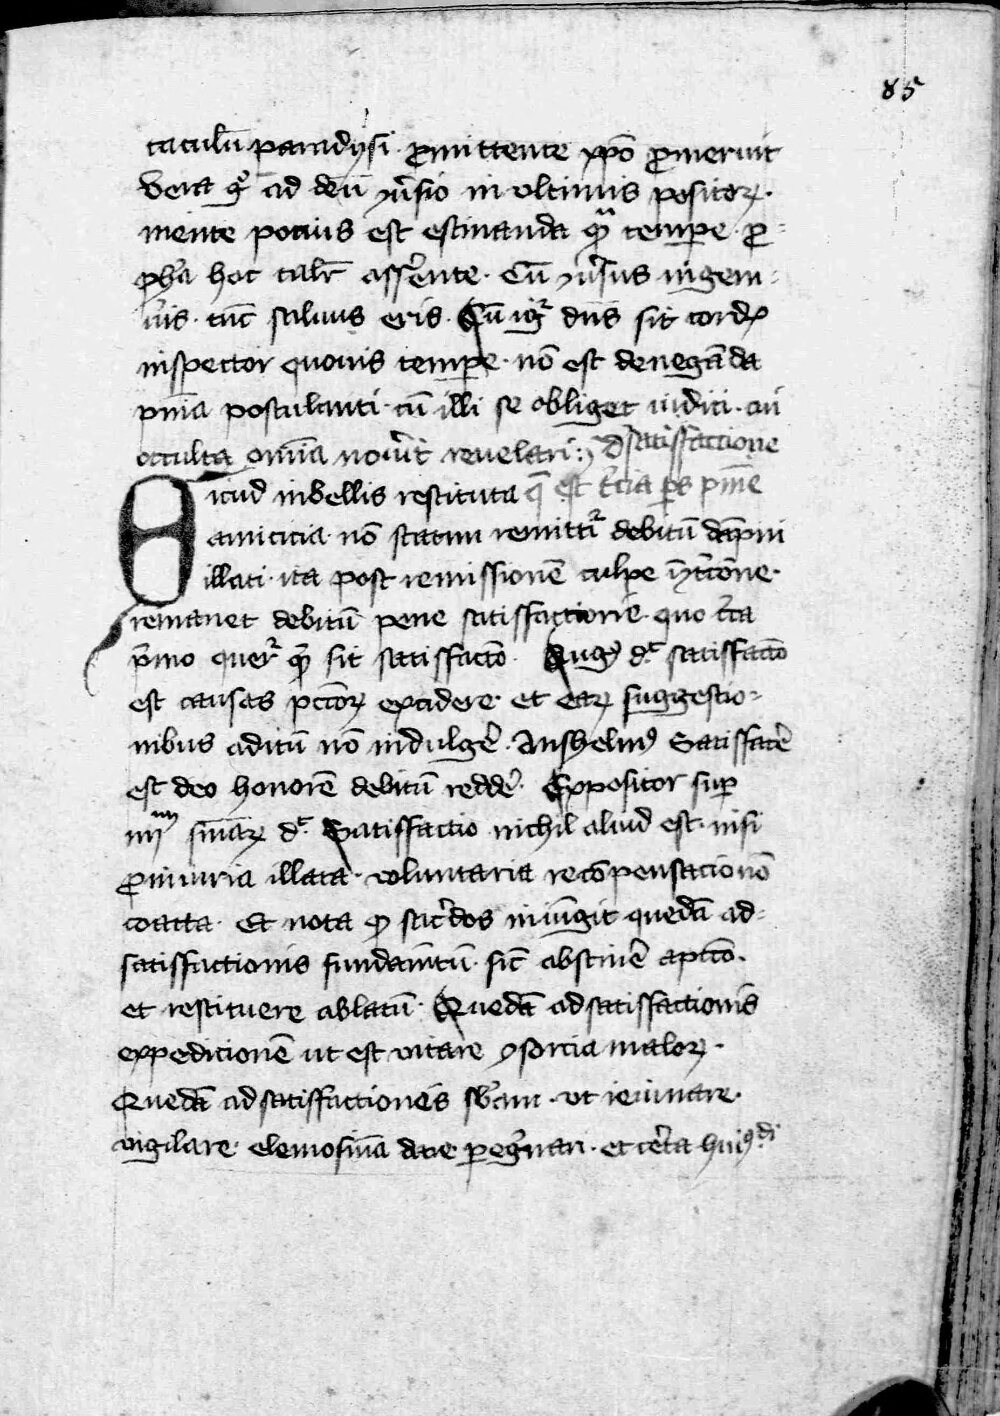 85
taculū paradysi ꝓmittente xp̄o ꝓmeruit
Vera gͦ ad deū ꝯuersio in vltimis positoꝝ·
mente potius est estimanda qͣ tempe· ꝓ-
pheta hoc talr̄ assērente· Cū ꝯuersus ingem-
ueris· tūc saluus eris. Cū igr̄ dn̄s sit cordis
inspector quouis tempe· nō est denegāda
pn̄ia postulanti· cū illi se obliget iudici· cui
occulta om̄ia nouerit reuelari: de satisfactione
Sicud in bellis restituta q̄ est tercia ps pn̄ie
amicicia nō statim remittr̄ debitū dāpni
illati· ita post remissionē culpe in ꝯtricōne·
remanet debitū pene satisfactorie quo circa
pͥmo querr̄ qd sit satisfactō. Augꝰ dt̄ satisfactō
est causas pctōꝝ excidere· et eaꝝ suggestio-
nibus aditū nō indulgēr. Anshelmꝰ Satisfacēre
est deo honorē debitū redder̄· Expositor sup
iiijm sniāꝝ dt̄ Satisfactio nichil aliud est· nisi
ꝓ iniuria illata· voluntaria recōpensacionō
coacta· Et nota qd sacerdos iniūgit quedā ad-
satisfactionis fundamentū· sic̄ abstinēre a pctō.
et restituere ablatū· Quedā ad satisfactionis
expedicionē ut est vitare ꝯsorcia maloꝝ·
Quedā ad satisfactionēs sbām· vt ieiunare·
vigilare· elemosinā dare peregrinari· et cetera huiꝰdi